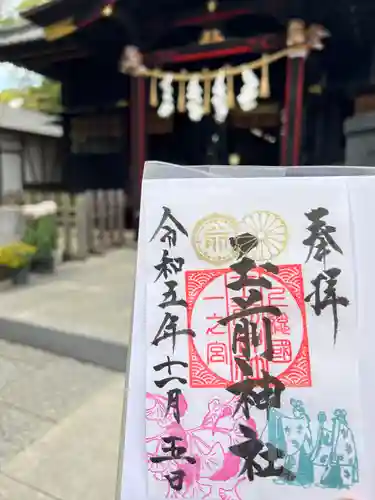 奉拝
上総国
一之宮
玉前神社
令和五年十二月五日